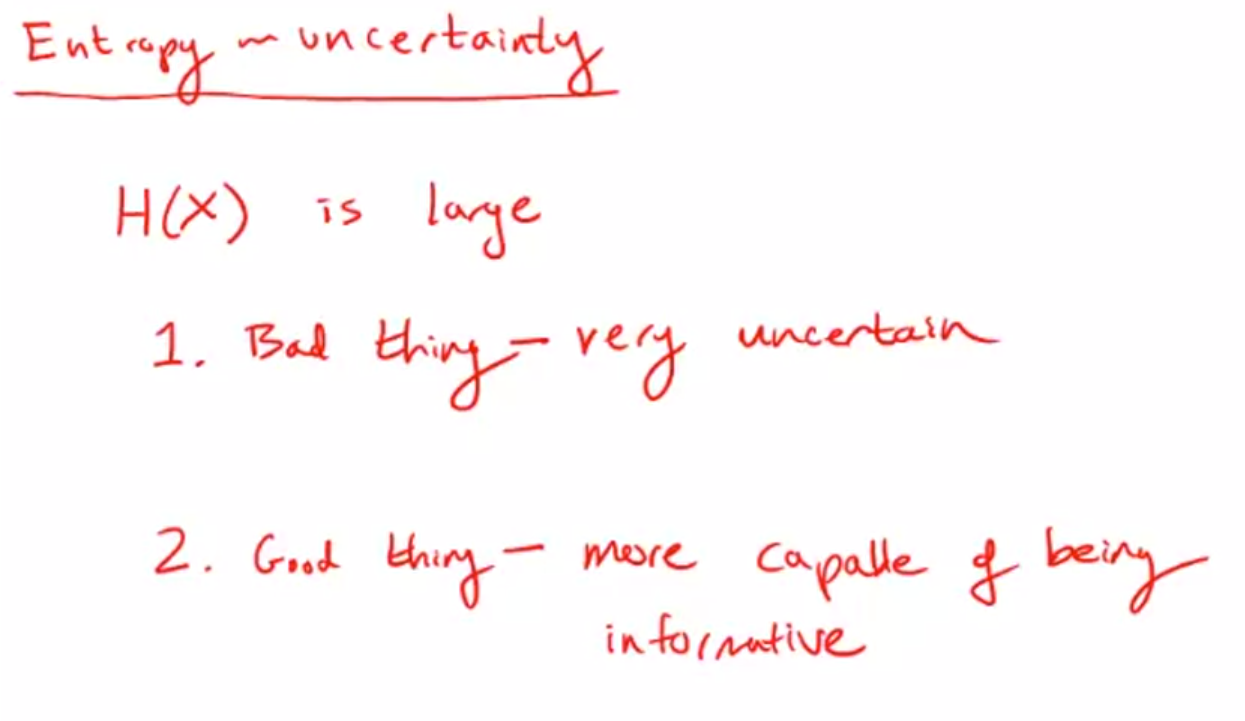 Entropy ~ uncertainty
H(X) is large
1. Bad thing - very uncertain
2. Good thing - more capable of being
informative